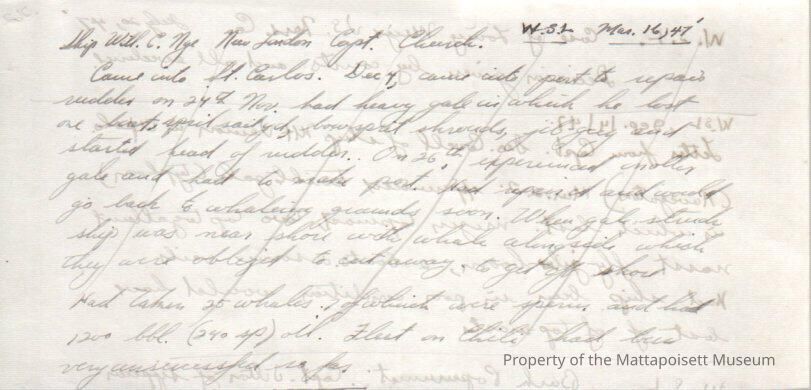 W.S.L. Mar. 16, 47'
Ship Wm. C. Nye New London Capt. Church.
Came into St. Carlos. Dec 4, came into port to repair
rudder on 24th Nov. had heavy gale in which he lost
one boat, spritsail yd, bowsprit shrouds, jib guy and
started head of rudder. On 26th, experienced another
gale and had to make port. Had repaired and would
go back to whaling grounds soon. When gale struck
ship was near shore with whale alongside which
they were obliged to cut away, to get off shore
Had taken 25 whales, of which were sperm and had
1200 bbl. (240 sp) oil. Fleet on Chili had been
very unsuccessful so far.
Property of the Mattapoisett Museum